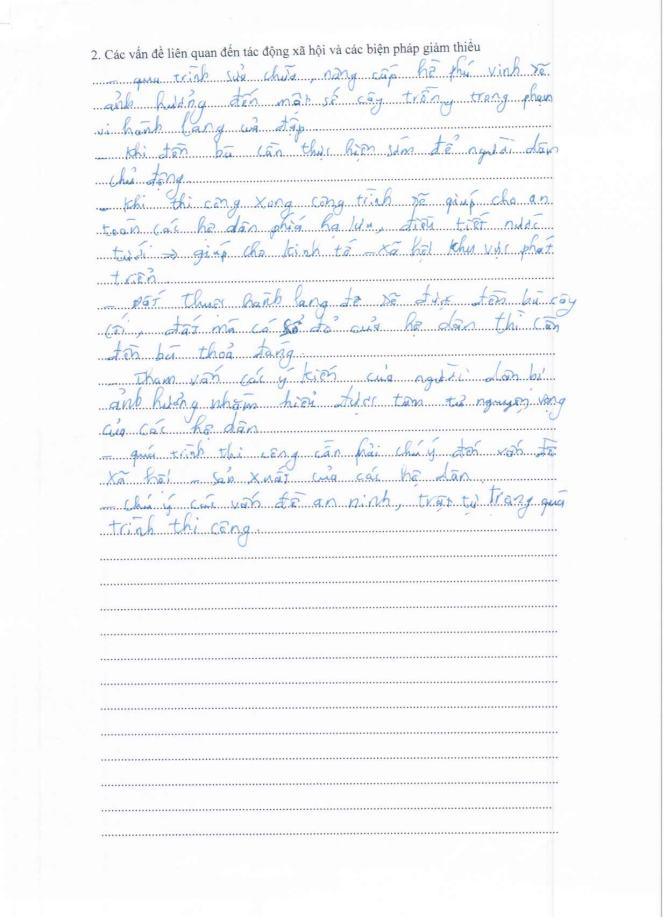 2. Các vấn đề liên quan đến tác động xã hội và các biện pháp giảm thiểu
- quá trình sửa chữa, nâng cấp hồ phú vinh sẽ
ảnh hưởng đến một số cây trồng trong phạm
vi hành lang của đập
- Khi đền bù cần thực hiện sớm để người dân
chủ động
- Khi thi công xong công trình sẽ giúp cho an
toàn các hộ dân phía hạ lưu, điều tiết nước
tưới => giúp cho kinh tế - xã hội khu vực phát
triển
- Đất thuộc hành lang đê sẽ được đền bù cây
cối, đất mà có sổ đỏ của hộ dân thì cần
đền bù thoả đáng
- Tham vấn các ý kiến của người dân bị
ảnh hưởng nhằm hiểu được tâm tư nguyện vọng
của các hộ dân
- quá trình thi công cần phải chú ý đến vấn đề
xã hội - sản xuất của các hộ dân
- chú ý các vấn đề an ninh, trật tự trong quá
trình thi công.